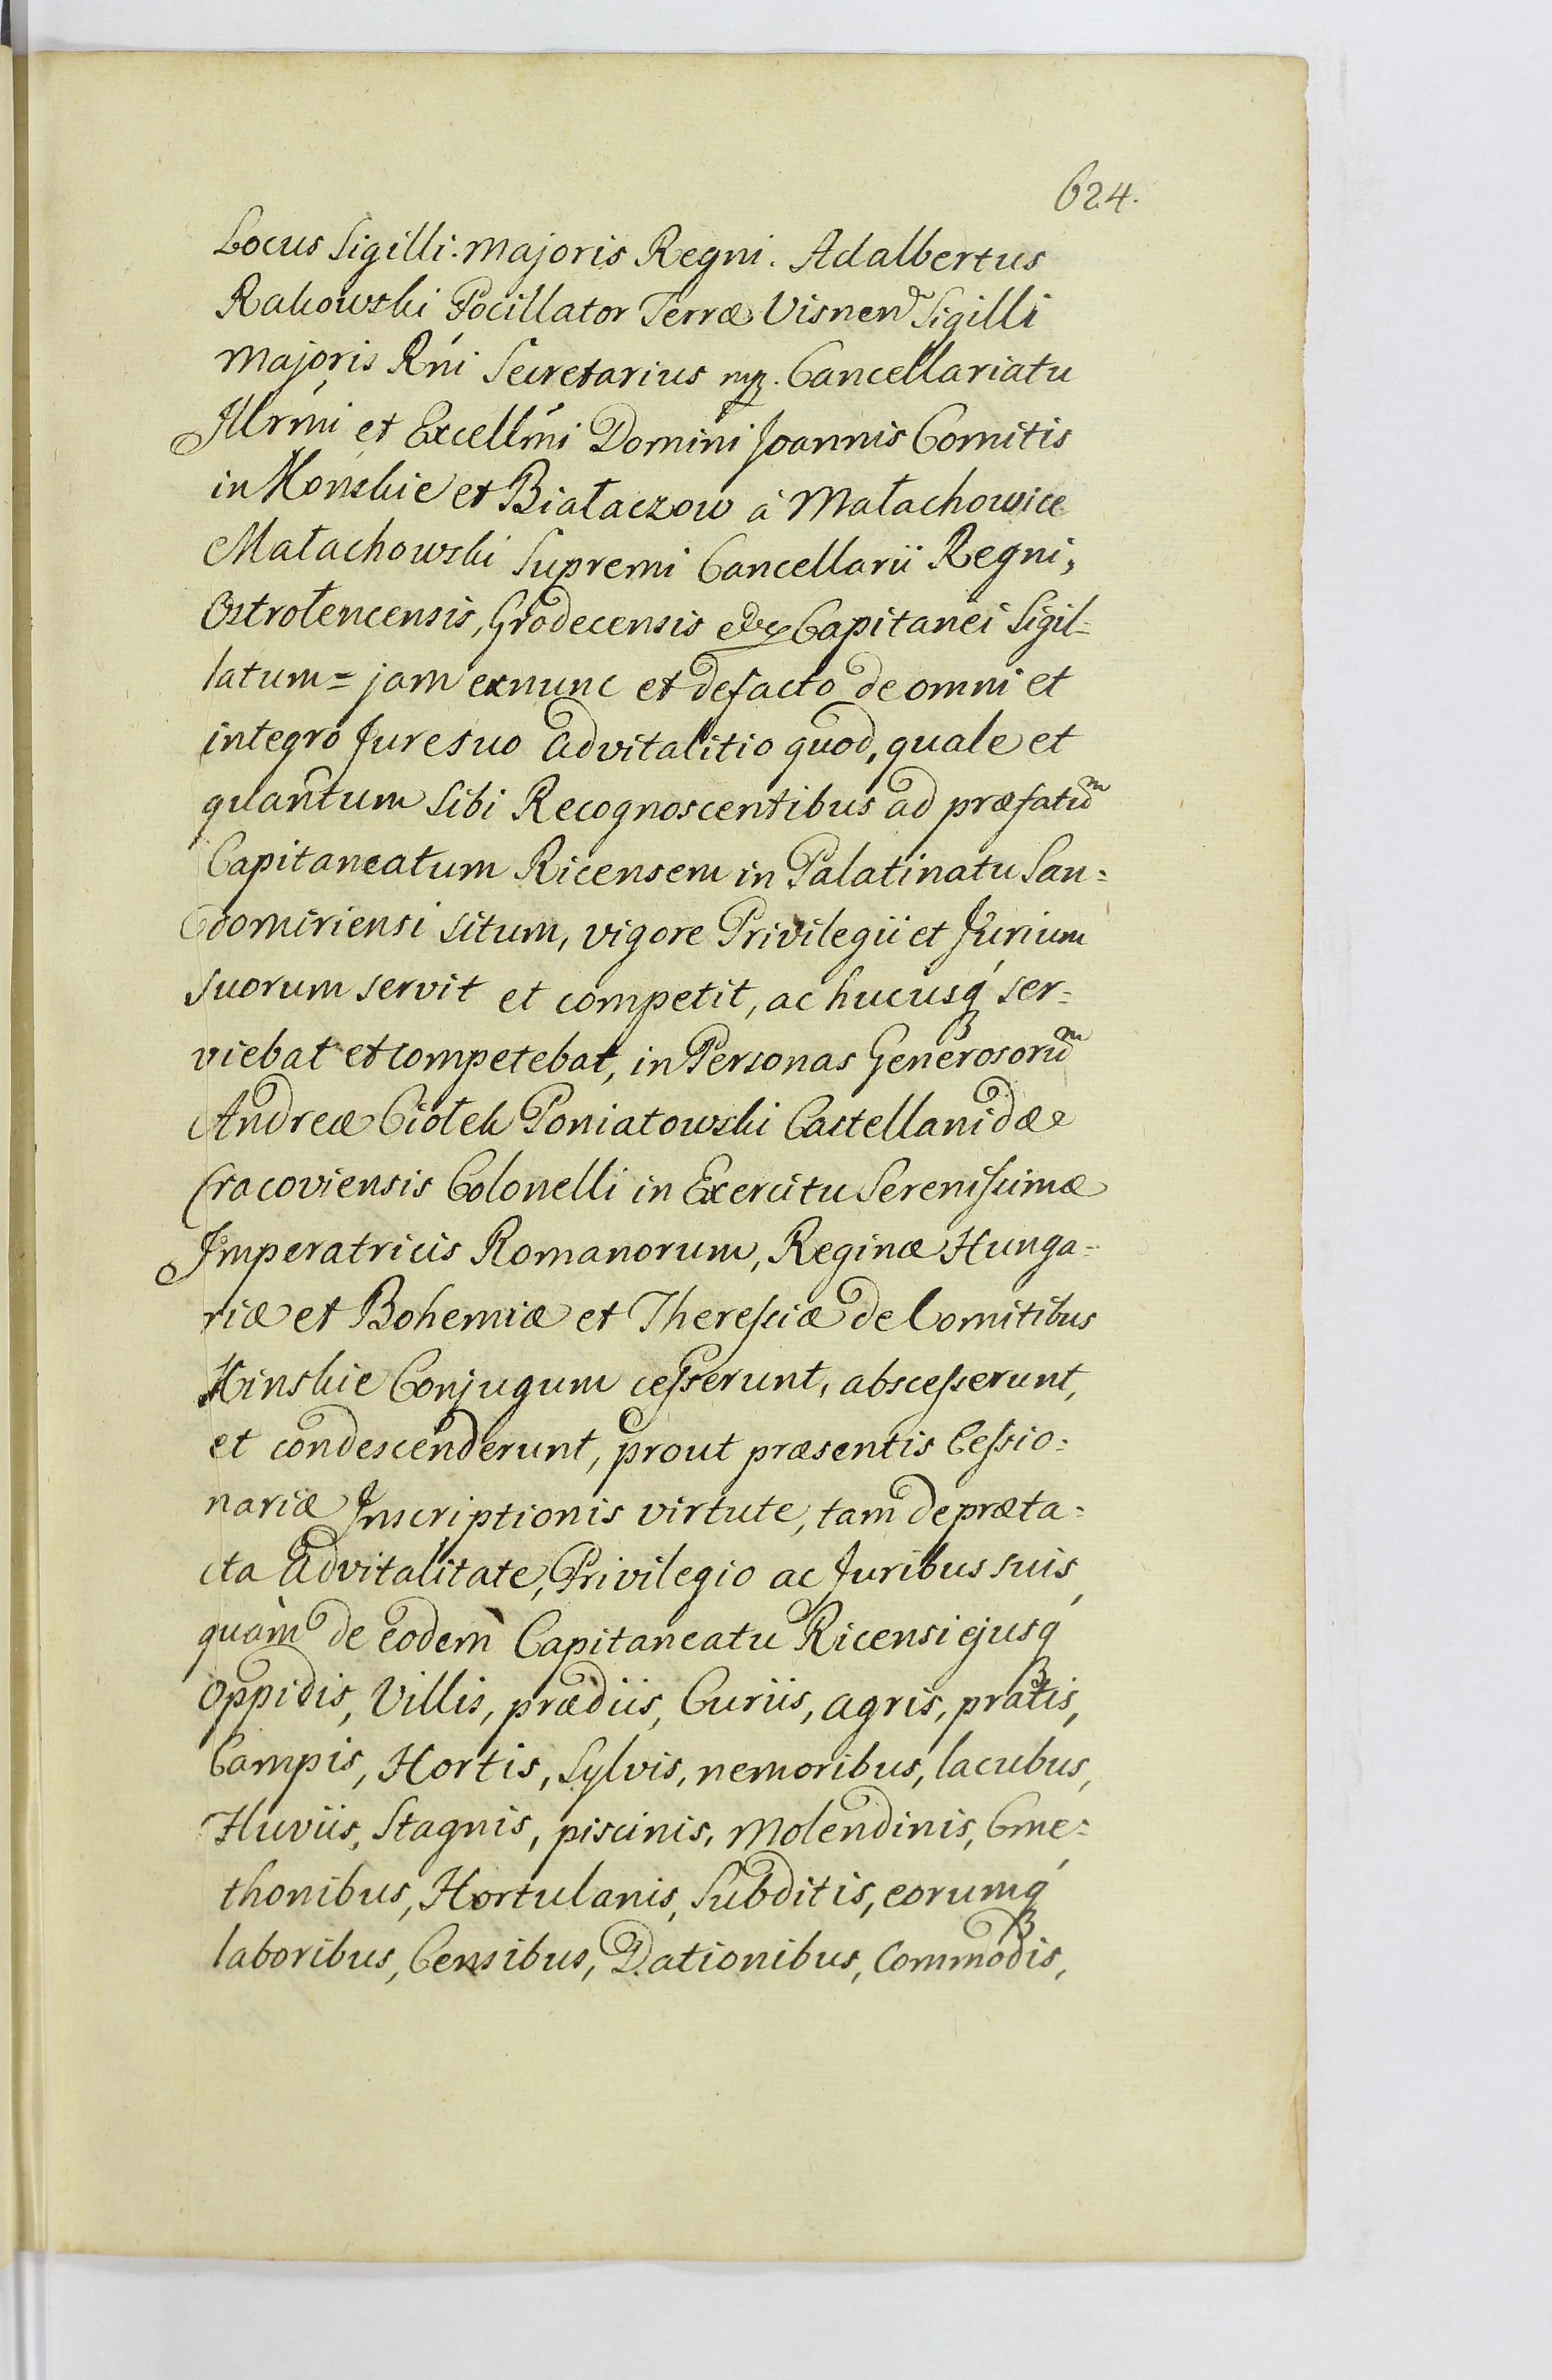 624.
Locus Sigilli. Majoris Regni. Adalbertus
Rakowski Pocillator Terræ Visnen Sigilli
Majoris Rńi Secretarius mp. Cancellariatu
Jllrmi et Excellmi Domini Joannis Comitis
in Końskie et Białaczow à Małachowice
Małachowski Supremi Cancellarii Regni,
Ostrołencensis, Grodecensis etc Capitanei Sigil=
latum = jam exnunc et defacto de omni et
integro Jure suo Advitalitio quod, quale et
quantum sibi Recognoscentibus ad præfatum
Capitaneatum Ricensem in Palatinatu San=
domiriensi situm, vigore Privilegii et Jurium
suorum servit et competit, ac hucusq́ ser=
viebat et competebat, in Personas Generosorum
Andreæ Ciołek Poniatowski Castellanidæ
Cracoviensis Colonelli in Exercitu Serenissimæ
Imperatricis Romanorum, Reginæ Hunga=
riæ et Bohemiæ et Theresciæ de Comitibus
Kinskie Conjugum cesserunt, abscesserunt,
et condescenderunt, prout præsentis Cessio=
nariæ Inscriptionis virtute, tam de præta=
cta Advitalitate, Privilegio ac Juribus suis,
quàm de eodem Capitaneatu Ricensi ejusq́
Oppidis, Villis, prædiis, Curiis, agris, pratis,
Campis, Hortis, Sylvis, nemoribus, lacubus,
Fluviis, Stagnis, piscinis, Molendinis, Cme=
thonibus, Hortulanis, Subditis, eorumq́
laboribus, Censibus, Dationibus, Commodis,